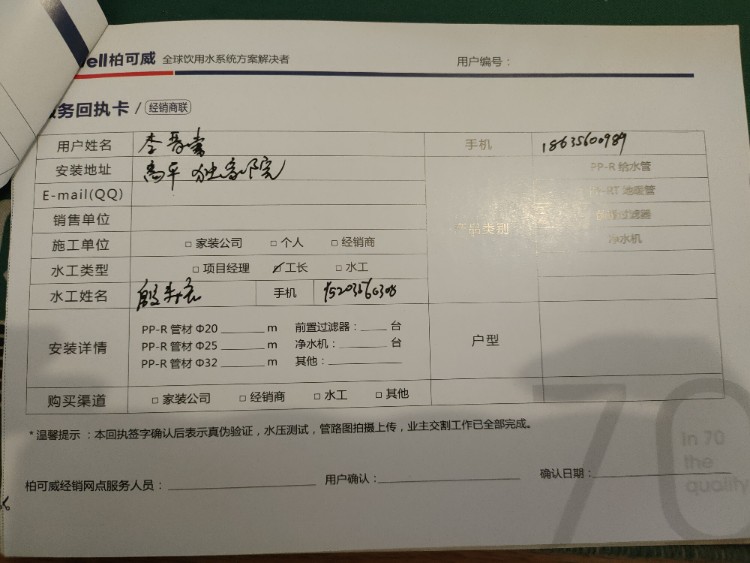 ell柏可威 全球饮用水系统方案解决者 用户编号：
务回执卡 / 经销商联
用户姓名 李 手机 18635600989
安装地址 高平 独家院 PP-R 给水管
E-mail(QQ) -RT 地暖管
销售单位 产品类别 过滤器
施工单位 □ 家装公司 □ 个人 □ 经销商 净水机
水工类型 □ 项目经理 ☑ 工长 □ 水工
水工姓名 手机 15203560308
PP-R 管材 Φ20 ______ m 前置过滤器：____ 台
安装详情 PP-R 管材 Φ25 ______ m 净水机：____ 台 户型
PP-R 管材 Φ32 ______ m 其他：______
购买渠道 □ 家装公司 □ 经销商 □ 水工 □ 其他
* 温馨提示：本回执签字确认后表示真伪验证，水压测试，管路图拍摄上传，业主交割工作已全部完成。
70
In 70
the
quality
柏可威经销网点服务人员：____________ 用户确认：____________ 确认日期：____________